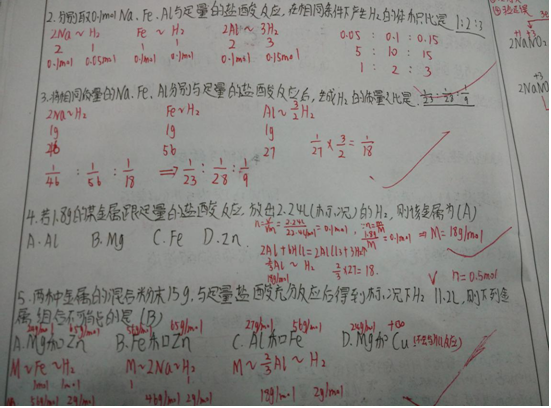 2.分别取0.1mol Na、Fe、Al与足量的盐酸反应,在相同条件下产生H2的体积比是 1:2:3
2Na~H2 Fe~H2 2Al~3H2 0.05 : 0.1 : 0.15
2 1 1 1 2 3 5 : 10 : 15
0.1mol 0.05mol 0.1mol 0.1mol 0.1mol 0.15mol 1 : 2 : 3
3.将相同质量的Na、Fe、Al分别与足量的盐酸反应后,生成H2的质量之比是 1/23:1/28:1/9
2Na~H2 Fe~H2 Al~3/2H2
1g 1g 1g
46 56 27 1/27×3/2=1/18
1/46 : 1/56 : 1/18 ⇒ 1/23 : 1/28 : 1/9
4.若1.8g的某金属跟足量的盐酸反应,放出2.24L(标、况)的H2,则该金属为(A)
A.Al B.Mg C.Fe D.Zn
=0.1mol =0.1mol ⇒ M=18g/mol
2Al+6HCl=2AlCl3+3H2↑
2/3Al~H2 2/3×27=18.
√ n=0.5mol
5.两种金属的混合粉末15g,与足量盐酸充分反应后得到标、况下H2 11.2L,则下列金
属组合不可能的是(B)
24g/mol 65g/mol 56g/mol 65g/mol 27g/mol 56g/mol 24g/mol +∞
A.Mg和Zn B.Fe和Zn C.Al和Fe D.Mg和Cu
M~Fe~H2 M~2Na~H2 M~2/3Al~H2
1mol 1mol 1 1
56g/mol 2g/mol 46g/mol 2g/mol 18g/mol 2g/mol
2NaNO3
+3
2NaNO2